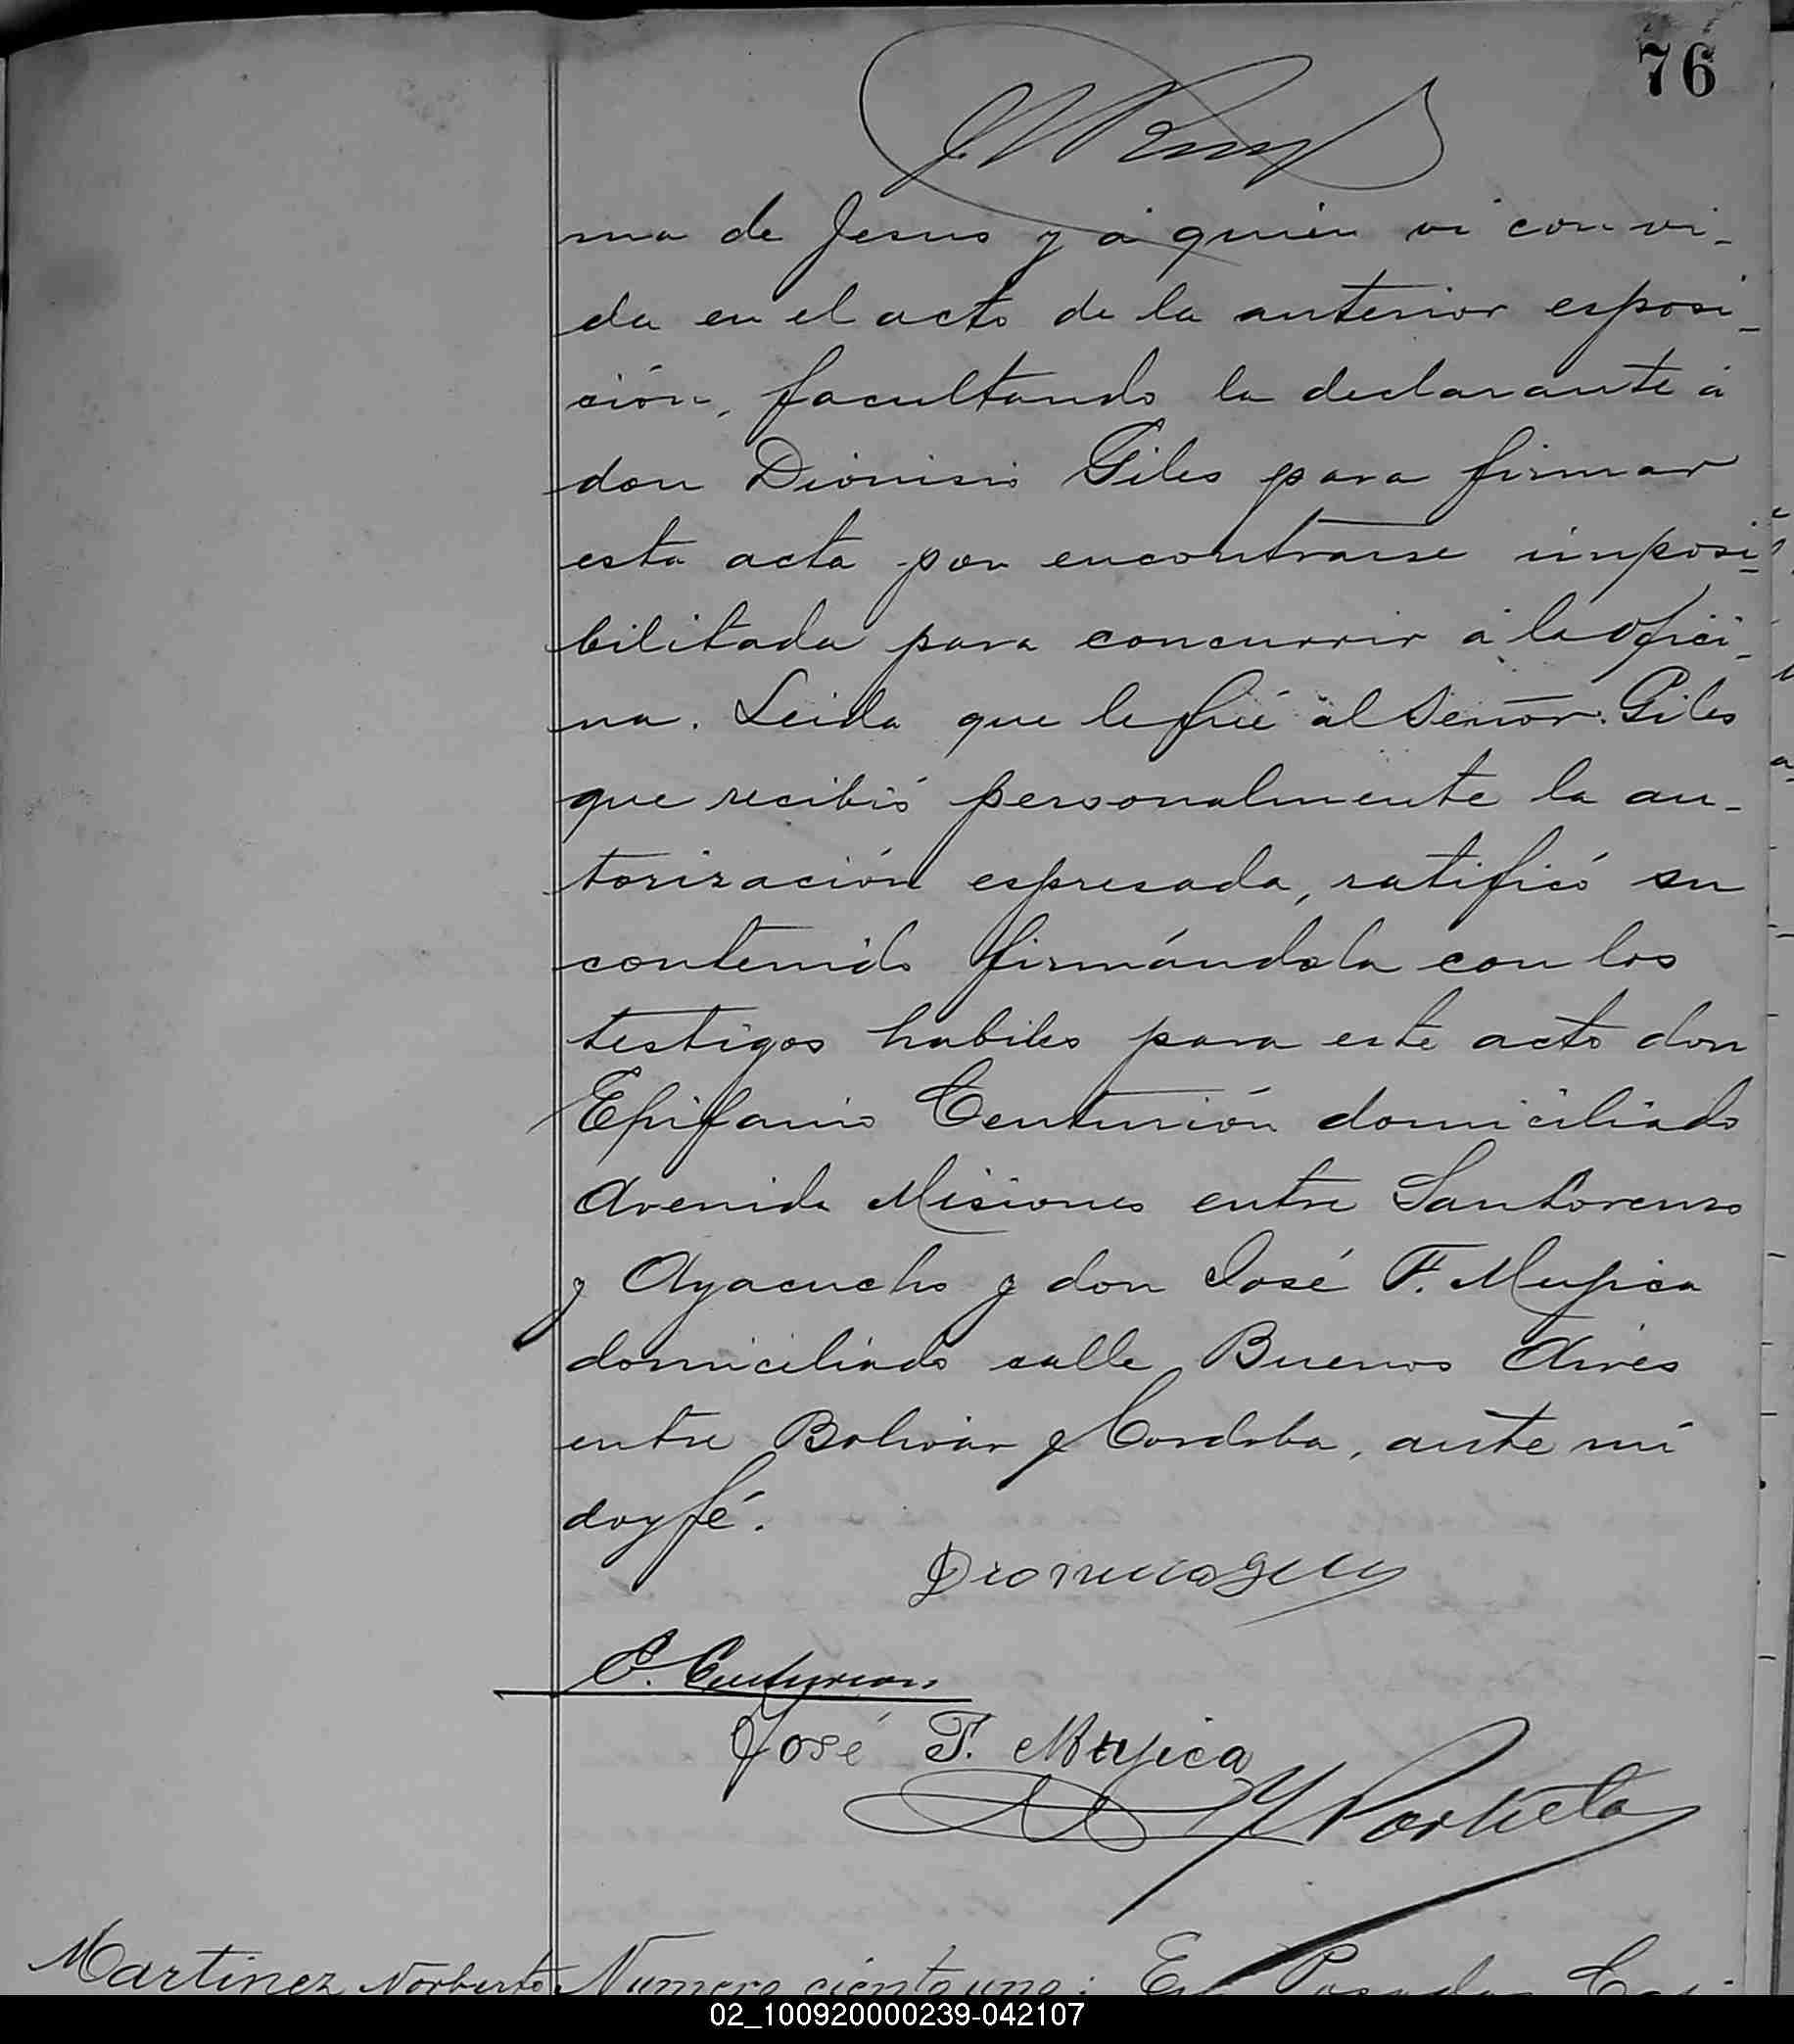 76
ma de Jesus y á quien ví con vi-
da en el acto de la anterior esposi-
ción, facultando la declarante á
don Dionisio Giles para firmar
esta acta por encontrarse imposi-
bilitada para concurrir á la ofici-
na. Leida que le fué al Señor Giles
que recibió personalmente la au-
torización espresada, ratificó su
contenido firmándola con los
testigos habiles para este acto don
Epifanio Centurión domiciliado
Avenida Misiones entre San Lorenzo
y Ayacucho y don José F. Mujica
domiciliado calle Buenos Aires
entre Bolivar y Cordoba, ante mí
doy fé.
Dionicio Giles
E. Centurion
José F. Mujica
Martinez Norberto Numero ciento uno: En Posadas, Capi
02_100920000239-042107